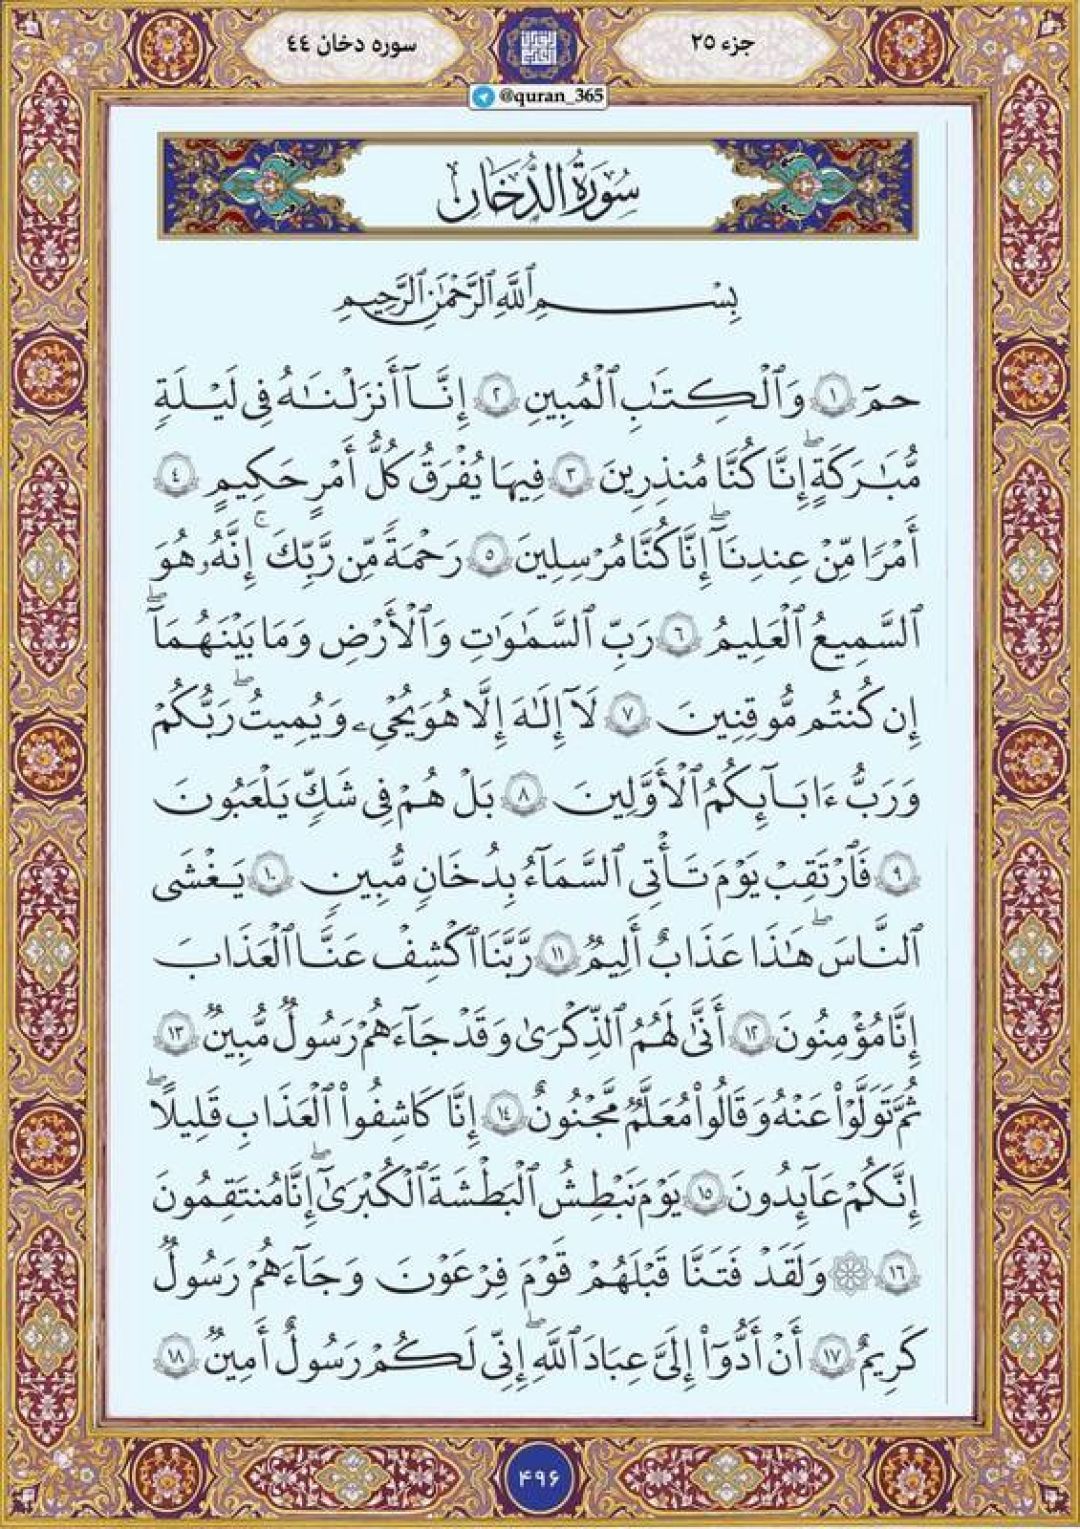 جزء ۲۵
سوره دخان ۴۴
@quran_365
سُورَةُ الدُّخَانِ
بِسْمِ ٱللَّهِ ٱلرَّحْمَٰنِ ٱلرَّحِيمِ
حمٓ ١ وَٱلْكِتَٰبِ ٱلْمُبِينِ ٢ إِنَّآ أَنزَلْنَٰهُ فِى لَيْلَةٍ
مُّبَٰرَكَةٍ ۖ إِنَّا كُنَّا مُنذِرِينَ ٣ فِيهَا يُفْرَقُ كُلُّ أَمْرٍ حَكِيمٍ ٤
أَمْرًا مِّنْ عِندِنَآ ۖ إِنَّا كُنَّا مُرْسِلِينَ ٥ رَحْمَةً مِّن رَّبِّكَ ۚ إِنَّهُۥ هُوَ
ٱلسَّمِيعُ ٱلْعَلِيمُ ٦ رَبِّ ٱلسَّمَٰوَٰتِ وَٱلْأَرْضِ وَمَا بَيْنَهُمَآ ۖ
إِن كُنتُم مُّوقِنِينَ ٧ لَآ إِلَٰهَ إِلَّا هُوَ يُحْىِۦ وَيُمِيتُ ۖ رَبُّكُمْ
وَرَبُّ ءَابَآئِكُمُ ٱلْأَوَّلِينَ ٨ بَلْ هُمْ فِى شَكٍّ يَلْعَبُونَ
٩ فَٱرْتَقِبْ يَوْمَ تَأْتِى ٱلسَّمَآءُ بِدُخَانٍ مُّبِينٍ ١٠ يَغْشَى
ٱلنَّاسَ ۖ هَٰذَا عَذَابٌ أَلِيمٌ ١١ رَّبَّنَا ٱكْشِفْ عَنَّا ٱلْعَذَابَ
إِنَّا مُؤْمِنُونَ ١٢ أَنَّىٰ لَهُمُ ٱلذِّكْرَىٰ وَقَدْ جَآءَهُمْ رَسُولٌ مُّبِينٌ ١٣
ثُمَّ تَوَلَّوْا۟ عَنْهُ وَقَالُوا۟ مُعَلَّمٌ مَّجْنُونٌ ١٤ إِنَّا كَاشِفُوا۟ ٱلْعَذَابِ قَلِيلًا ۖ
إِنَّكُمْ عَآئِدُونَ ١٥ يَوْمَ نَبْطِشُ ٱلْبَطْشَةَ ٱلْكُبْرَىٰٓ ۖ إِنَّا مُنتَقِمُونَ
١٦ ۞ وَلَقَدْ فَتَنَّا قَبْلَهُمْ قَوْمَ فِرْعَوْنَ وَجَآءَهُمْ رَسُولٌ
كَرِيمٌ ١٧ أَنْ أَدُّوٓا۟ إِلَىَّ عِبَادَ ٱللَّهِ ۖ إِنِّى لَكُمْ رَسُولٌ أَمِينٌ ١٨
۴۹۶